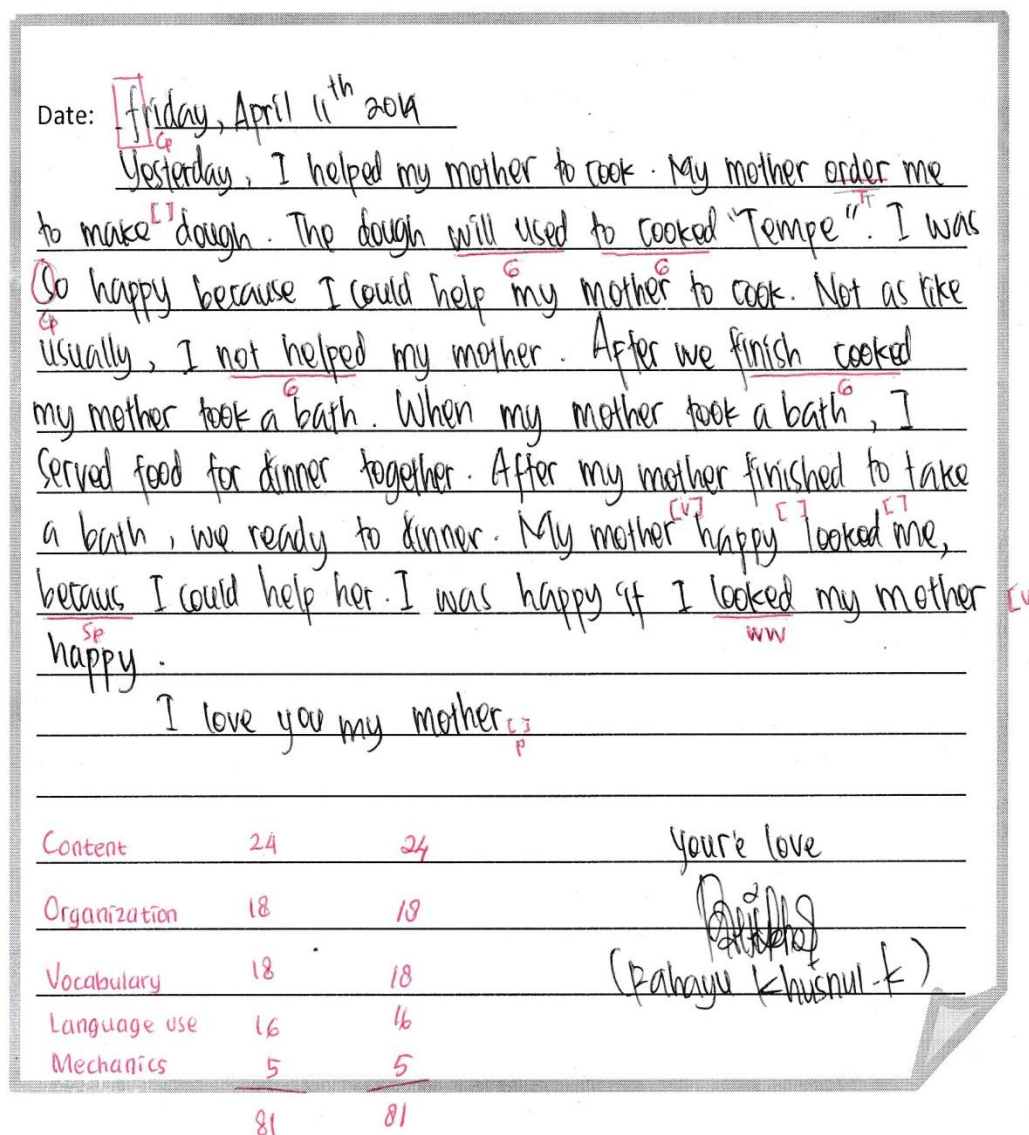 Date: friday, April 11th 2014
Cp
Yesterday, I helped my mother to cook. My mother order me
T
to make [ ] dough. The dough will used to cooked "Tempe". I was
G G
So happy because I could help my mother to cook. Not as like
Cp
usually, I not helped my mother. After we finish cooked
G G
my mother took a bath. When my mother took a bath, I
served food for dinner together. After my mother finished to take
a bath, we ready to dinner. My mother [V] happy [ ] looked [ ] me,
becaus I could help her. I was happy if I looked my mother
Sp WW
happy.
I love you my mother [ ]
P
Content 24 24
your'e love
Organization 18 18
Vocabulary 18 18
(Rahayu Khusnul.k)
Language use 16 16
Mechanics 5 5
81 81